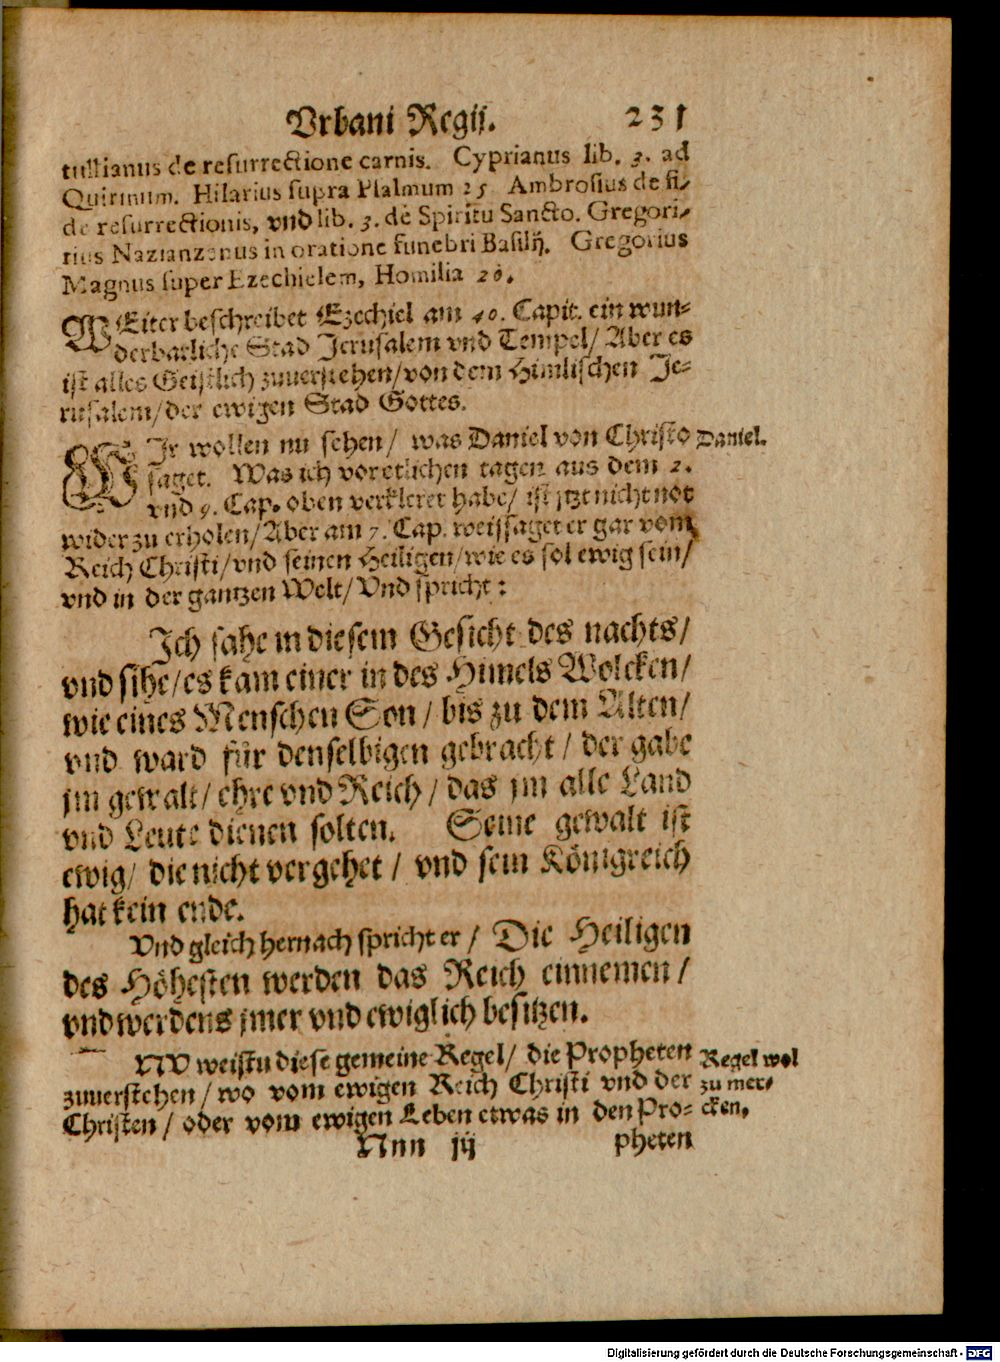 Vrbani Regij. 231
tullianus de resurrectione carnis. Cyprianus lib. 3. ad
Quirinum. Hilarius supra Psalmum 25 Ambrosius de fi-
de resurrectionis, vnd lib. 3. de Spiritu Sancto. Gregori-
rius Nazianzenus in oratione funebri Basilij. Gregorius
Magnus super Ezechielem, Homilia 20.
WEiter beschreibet Ezechiel am 40. Capit. ein wun-
derbarliche Stad Jerusalem vnd Tempel/ Aber es
ist alles Geistlich zuuerstehen/ von dem Himlischen Je-
rusalem/ der ewigen Stad Gottes.
WJr wollen nu sehen/ was Daniel von Christo Daniel.
saget. Was ich vor etlichen tagen aus dem 2.
vnd 9. Cap. oben verkleret habe/ ist jtzt nicht not
wider zu erholen/ Aber am 7. Cap. weissaget er gar vom
Reich Christi/ vnd seinen Heiligen/ wie es sol ewig sein/
vnd in der gantzen Welt/ Vnd spricht:
Jch sahe in diesem Gesicht des nachts/
vnd sihe/ es kam einer in des Himels Wolcken/
wie eines Menschen Son/ bis zu dem Alten/
vnd ward für denselbigen gebracht/ der gabe
jm gewalt/ ehre vnd Reich/ das jm alle Land
vnd Leute dienen solten. Seine gewalt ist
ewig/ die nicht vergehet/ vnd sein Königreich
hat kein ende.
Vnd gleich hernach spricht er/ Die Heiligen
des Höhesten werden das Reich einnemen/
vnd werdens jmer vnd ewiglich besitzen.
NV weistu diese gemeine Regel/ die Propheten Regel wol
zuuerstehen/ wo vom ewigen Reich Christi vnd der zu mer-
Christen/ oder vom ewigen Leben etwas in den Pro- cken.
Nnn iij pheten
Digitalisierung gefördert durch die Deutsche Forschungsgemeinschaft - DFG